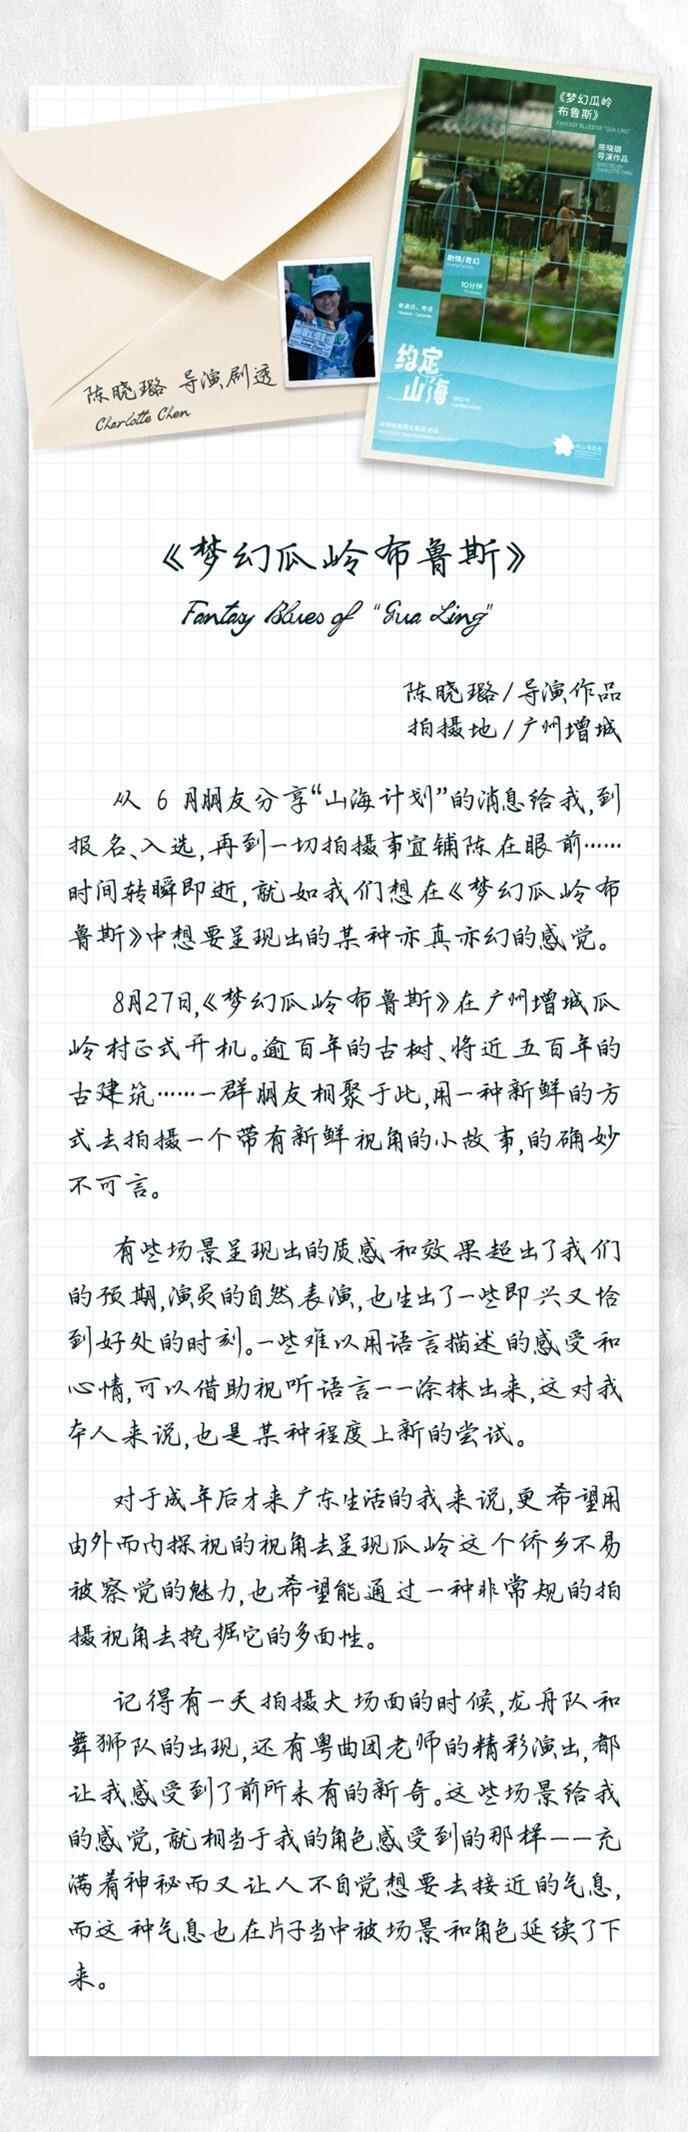 《梦幻瓜岭
布鲁斯》
FANTASY BLUES OF "GUA LING"
陈晓璐
导演作品
剧情/奇幻
10分钟
约定
山海
陈晓璐 导演剧透
Charlotte Chen
《梦幻瓜岭布鲁斯》
Fantasy Blues of "Gua Ling"
陈晓璐/导演作品
拍摄地/广州增城
从 6 月朋友分享“山海计划”的消息给我,到
报名、入选,再到一切拍摄事宜铺陈在眼前……
时间转瞬即逝,就如我们想在《梦幻瓜岭布
鲁斯》中想要呈现出的某种亦真亦幻的感觉。
8月27日,《梦幻瓜岭布鲁斯》在广州增城瓜
岭村正式开机。逾百年的古树、将近五百年的
古建筑……一群朋友相聚于此,用一种新鲜的方
式去拍摄一个带有新鲜视角的小故事,的确妙
不可言。
有些场景呈现出的质感和效果超出了我们
的预期,演员的自然表演,也生出了一些即兴又恰
到好处的时刻。一些难以用语言描述的感受和
心情,可以借助视听语言一一涂抹出来,这对我
本人来说,也是某种程度上新的尝试。
对于成年后才来广东生活的我来说,更希望用
由外而内探视的视角去呈现瓜岭这个侨乡不易
被察觉的魅力,也希望能通过一种非常规的拍
摄视角去挖掘它的多面性。
记得有一天拍摄大场面的时候,龙舟队和
舞狮队的出现,还有粤曲团老师的精彩演出,都
让我感受到了前所未有的新奇。这些场景给我
的感觉,就相当于我的角色感受到的那样——充
满着神秘而又让人不自觉想要去接近的气息,
而这种气息也在片子当中被场景和角色延续了下
来。